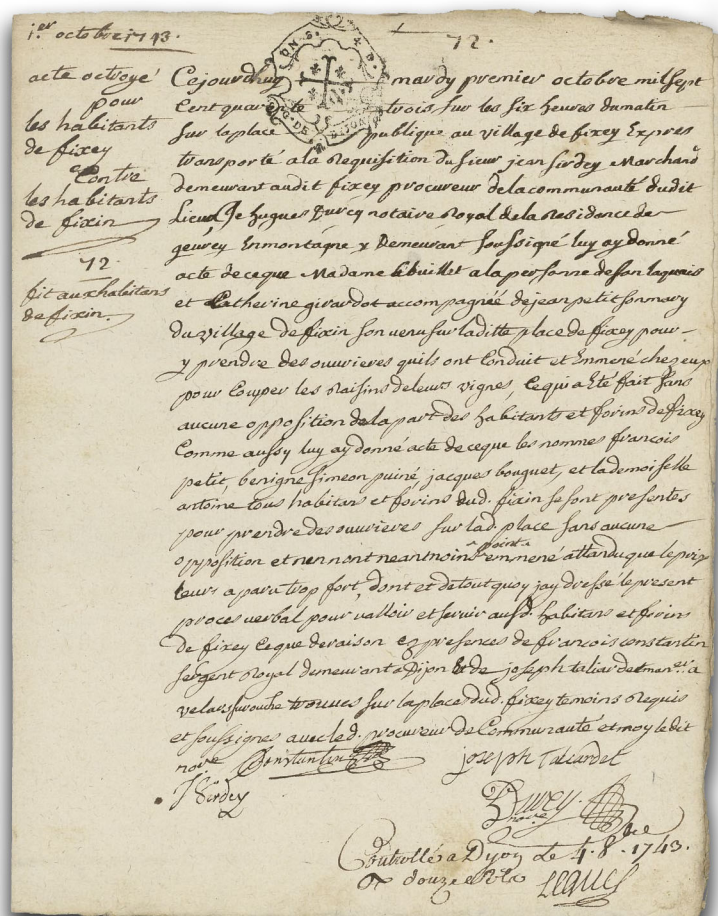 1.er octobre 1743.
72.
acte octroyé
pour
les habitants
de fixey
Contre
les habitants
de fixin
72.
fit aux habitans
de fixin.
Cejourdhuy mardy premier octobre mil sept
Cent quarante trois, sur les six heures du matin
sur la place publique au village de fixey Expres
transporté a la Requisition du sieur jean sirdey Marchand
demeurant audit fixey procureur de la communauté dudit
Lieu, Je hugues Durey notaire Royal de la Residence de
gevrey Enmontagne y Demeurant soussigné luy ay donné
acte de ceque Madame lebuillet a la personne de son laquais
et Catherine girardot accompagnée de jean petit son mary
du village de fixin son venu sur laditte place de fixey pour
y prendre des ouvrieres quils ont Conduit et Enmené chez eux
pour Couper les Raisins de leurs vignes, Ce qui a Eté fait sans
aucune opposition de la part des habitants et forins de fixey
Comme aussy luy ay donné acte de ceque les nommes françois
petit, benigne simeon puiné, jacques bouguet, et la demoiselle
antoine tous habitans et forins dud. fixin se sont presentes
pour prendre des ouvrieres sur lad. place sans aucune
opposition et nen nont neantmoins point enmené attandu que le prix
leurs a paru trop fort, dont et de tout quoy jay dressé le present
proces verbal pour valloir et servir ausd. habitans et forins
de fixey Ce que de raison Ez presences de francois constantin
sergent Royal demeurant a Dijon Et de joseph taliardet a
velars sur ouche trouves sur la place dud. fixey temoins Requis
et soussignes avec led. procureur de Communauté et moy ledit
noire Constantin joseph Taliardet
J Sirdey
Durey
noire
Controllé a Dijon le 4. 8.bre 1743.
douze